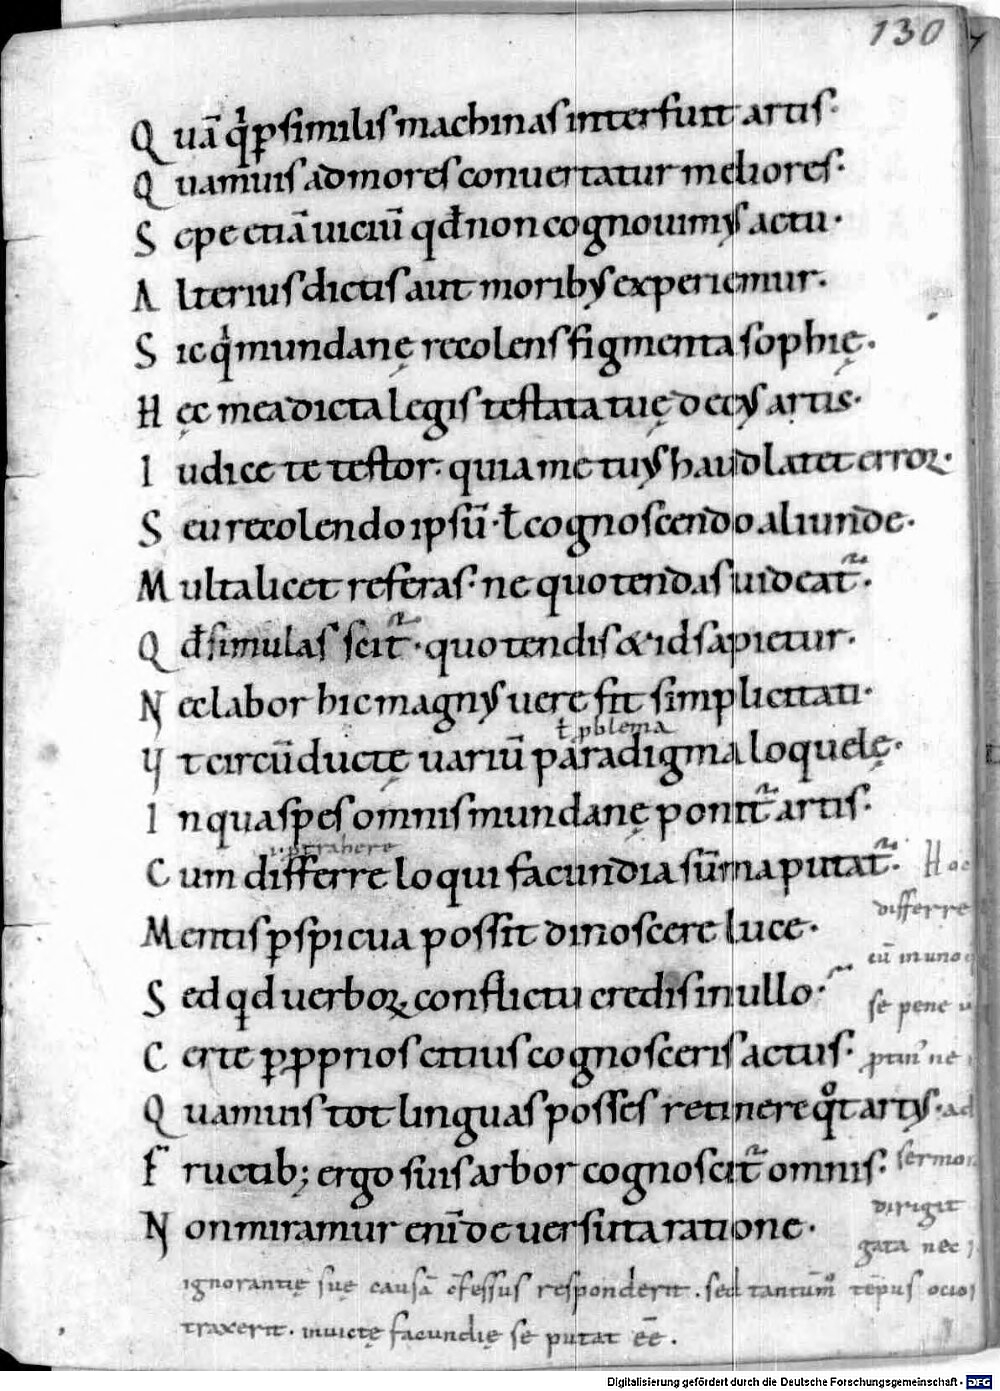 130
Quā qͥ ꝑsimilis machinas interfuit artis·
Quamuis ad mores conuertatur meliores·
Sepe etiā uiciū qđ non cognouimꝰ actu·
Alterius dictis aut moribꝰ experiemur·
Sic qͥ mundanę recolens figmenta sophię·
Hęc mea dicta legis testata tuę decꝰ artis·
Iudice te testor· quia me tuꝰ haud latet erroꝝ·
Seu recolendo ipsū· ł cognoscendo aliunde·
Multa licet referas· ne quo tendas uideat᷑·
Qđ simulas scit᷑· quo tendis & id sapietur·
Nec labor hic magnꝰ uere fit simplicitati·
ł ꝓblema
Vt circūductę uariū paradigma loquelę·
In qua spes omnis mundanę ponit᷑ artis·
ł ꝓtrahere
Cum differre loqui facundia sūma putat᷑·
Hoc
Mentis ꝑspicua possit dinoscere luce·
differre
Sed qd uerboꝝ conflictu credis in nullo·
cū in uno
se pene
Certe ꝑ ꝓprios citius cognosceris actus·
ne
Quamuis tot linguas posses retinere qͦt artꝰ·
ad
Fructib; ergo suis arbor cognoscit᷑ omnis·
sermon
Non miramur enī de uersuta ratione·
dirigit
gata nec
ignorantię suę causā c̄fessus responderit. sed tantūmͦ tēpus
traxerit. inuictę facundię se putat ēē.
Digitalisierung gefördert durch die Deutsche Forschungsgemeinschaft - DFG